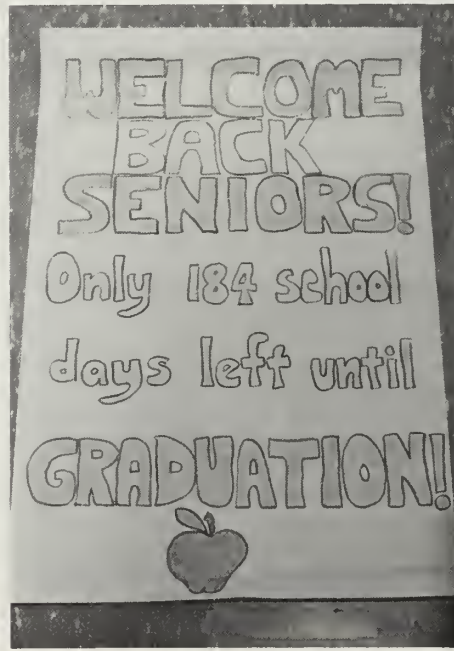 WELCOME
BACK
SENIORS!
Only 184 school
days left until
GRADUATION!